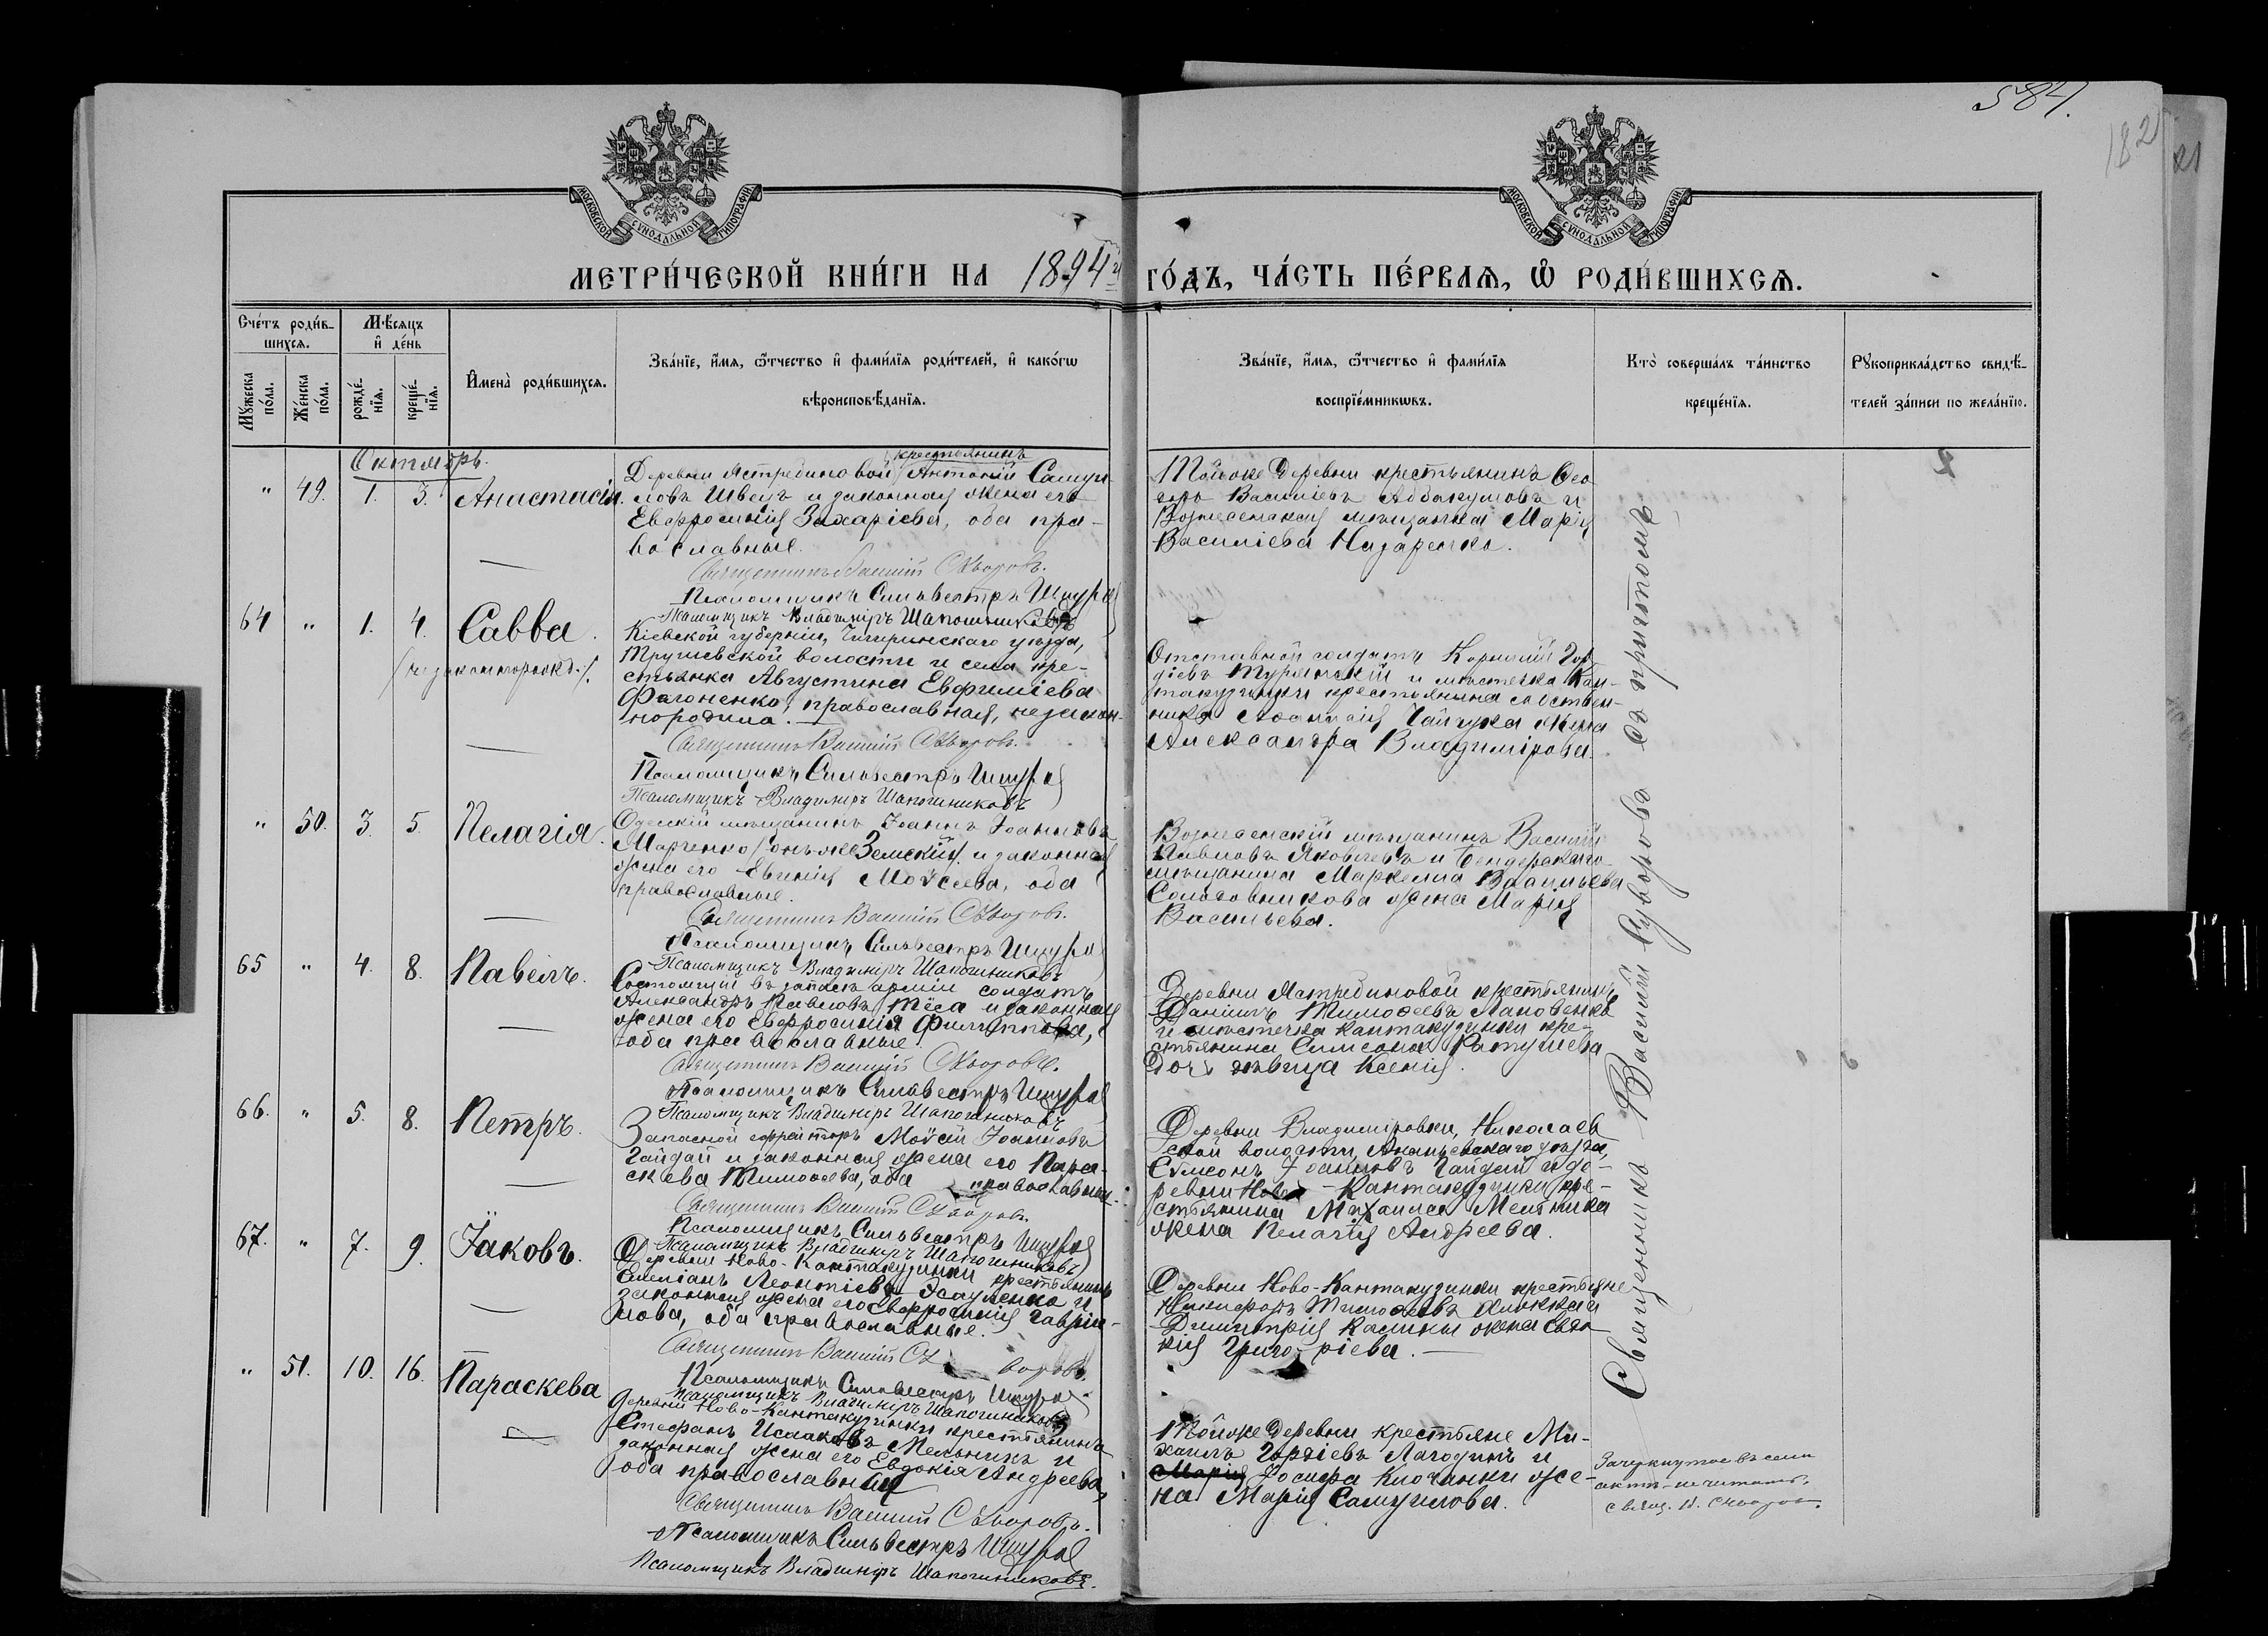 584.
182
21
МОСКОВСКОЙ СУНОДАЛЬНОЙ ТИПОГРАФІИ
МОСКОВСКОЙ СУНОДАЛЬНОЙ ТИПОГРАФІИ
МЕТРИ́ЧЕСКОЙ КНИ́ГИ НА 1894й ГО́ДЪ, ЧА́СТЬ ПЕ́РВАѦ, Ѿ РОДИ́ВШИХСѦ.
Сче́тъ роди́в-
шихсѧ.
Мѣ́сяцъ
и҆ де́нь
Мꙋ́жеска
по́ла.
Же́нска
по́ла.
рожде́-
нїѧ.
креще́-
нїѧ.
И҆мена̀ роди́вшихсѧ.
Зва́нїе, и҆́мѧ, ѻ҆́тчество и҆ фами́лїѧ роди́телей, и҆ како́гѡ
вѣроисповѣ́данїѧ.
Зва́нїе, и҆́мѧ, ѻ҆́тчество и҆ фами́лїѧ
воспрїе́мникѡвъ.
Кто̀ соверша́лъ та́инство
креще́нїѧ.
Рꙋкоприкла́дство свидѣ́-
телей за́писи по жела́нїю.
Октябрь.
" 49. 1. 3. Анастасія.
крестьянинъ
Деревни Ястрединовой Антоній Самуи-
ловъ Швецъ и законная жена его
Евфросинія Захаріева, оба пра-
вославные.
Священникъ Василій Скворовъ.
Псаломщикъ Сильвестръ
Псаломщикъ Владиміръ Шапошниковъ
Тойже деревни крестьянинъ Ѳео-
доръ Василіевъ Аввакумовъ и
Вознесенская мѣщанка Марія
Василіева Назаренко.
64 " 1. 4. Савва.
/незаконнорожд./
Кіевской губерніи, Чигиринскаго уѣзда,
Трушевской волости и села кре-
стьянка Августина Евфиміева
православная, незакон-
нородила.
Священникъ Василій Скворовъ.
Псаломщикъ Сильвестръ
Псаломщикъ Владиміръ Шапошниковъ
Отставной солдатъ Корнилій Гор-
діевъ и мѣстечка Кан-
такузинки крестьянина собствен-
ника жена
Александра Владимірова.
" 50. 3. 5. Пелагія.
Одесскій мѣщанинъ Іоаннъ Іоанновъ
Марченко /онъ-же Земскій/ и законная
жена его Евгенія Моѵсеева, оба
православные.
Священникъ Василій Скворовъ.
Псаломщикъ Сильвестръ
Псаломщикъ Владиміръ Шапошниковъ
Вознесенскій мѣщанинъ Василій
Павловъ Яковлевъ и Бендерскаго
мѣщанина Маркелла Васильева
Солодовникова жена Марія
Васильева.
65 " 4. 8. Павелъ.
Состоящій въ запасѣ арміи солдатъ
Александръ Павловъ Тёса и законная
жена его Евфросинія Филиппова,
оба православные.
Священникъ Василій Скворовъ.
Псаломщикъ Сильвестръ
Псаломщикъ Владиміръ Шапошниковъ
Деревни Ястрединовой крестьянинъ
Даніилъ Тимоѳеевъ Лановенко
и мѣстечка Кантакузинки кре-
стьянина Симеона Ратушева
дочь дѣвица Ксенія.
66. " 5. 8. Петръ.
Запасной ефрейторъ Моѵсей Іоанновъ
Гайдай и законная жена его Пара-
скева Тимоѳеева, оба православные.
Священникъ Василій Скворовъ.
Псаломщикъ Сильвестръ
Псаломщикъ Владиміръ Шапошниковъ
Деревни Владиміровки, Николаев-
ской волости, Ананьевскаго уѣзда,
Симеонъ Іоанновъ Гайдай и де-
ревни Ново-Кантакузинки кре-
стьянина Михаила Мельника
жена Пелагія Андреева.
67. " 7. 9. Іаковъ.
Деревни Ново-Кантакузинки крестьянинъ
Емеліанъ Леонтіевъ и
законная жена его Евфросинія Гаврии-
лова, оба православные.
Священникъ Василій Скворовъ.
Псаломщикъ Сильвестръ
Псаломщикъ Владиміръ Шапошниковъ
Деревни Ново-Кантакузинки крестьяне
Никифоръ Тимоѳеевъ и
Димитрія Калины жена
Григоріева.
" 51. 10. 16. Параскева
Деревни Ново-Кантакузинки крестьянинъ
Стефанъ Исааковъ Мельникъ и
законная жена его Евдокія Андреева,
оба православные
Священникъ Василій Скворовъ.
Псаломщикъ Сильвестръ
Псаломщикъ Владиміръ Шапошниковъ.
Тойже деревни крестьяне Ми-
хаилъ Гордіевъ Лагодинъ и
Марія Іосифа Ключанки же-
на Марія Самуилова.
Священникъ Василій Суворовъ съ причтомъ
Зачеркнутое въ семъ
актѣ не читать.
Свящ. В. Скворовъ.